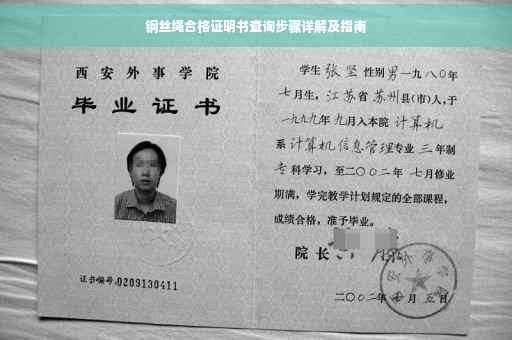 钢丝绳合格证明书查询步骤详解及指南
西安外事学院
毕业证书
证书编号:0209130411
学生 张坚 性别 男 一九八〇年
七月生，江苏省 苏州 县(市)人，于
一九九九年 九月入本院 计算机
系 计算机信息管理 专业 三 年制
专科学习，至二〇〇二年 七月修业
期满，学完教学计划规定的全部课程，
成绩合格，准予毕业。
院长
二〇〇二年 月五日